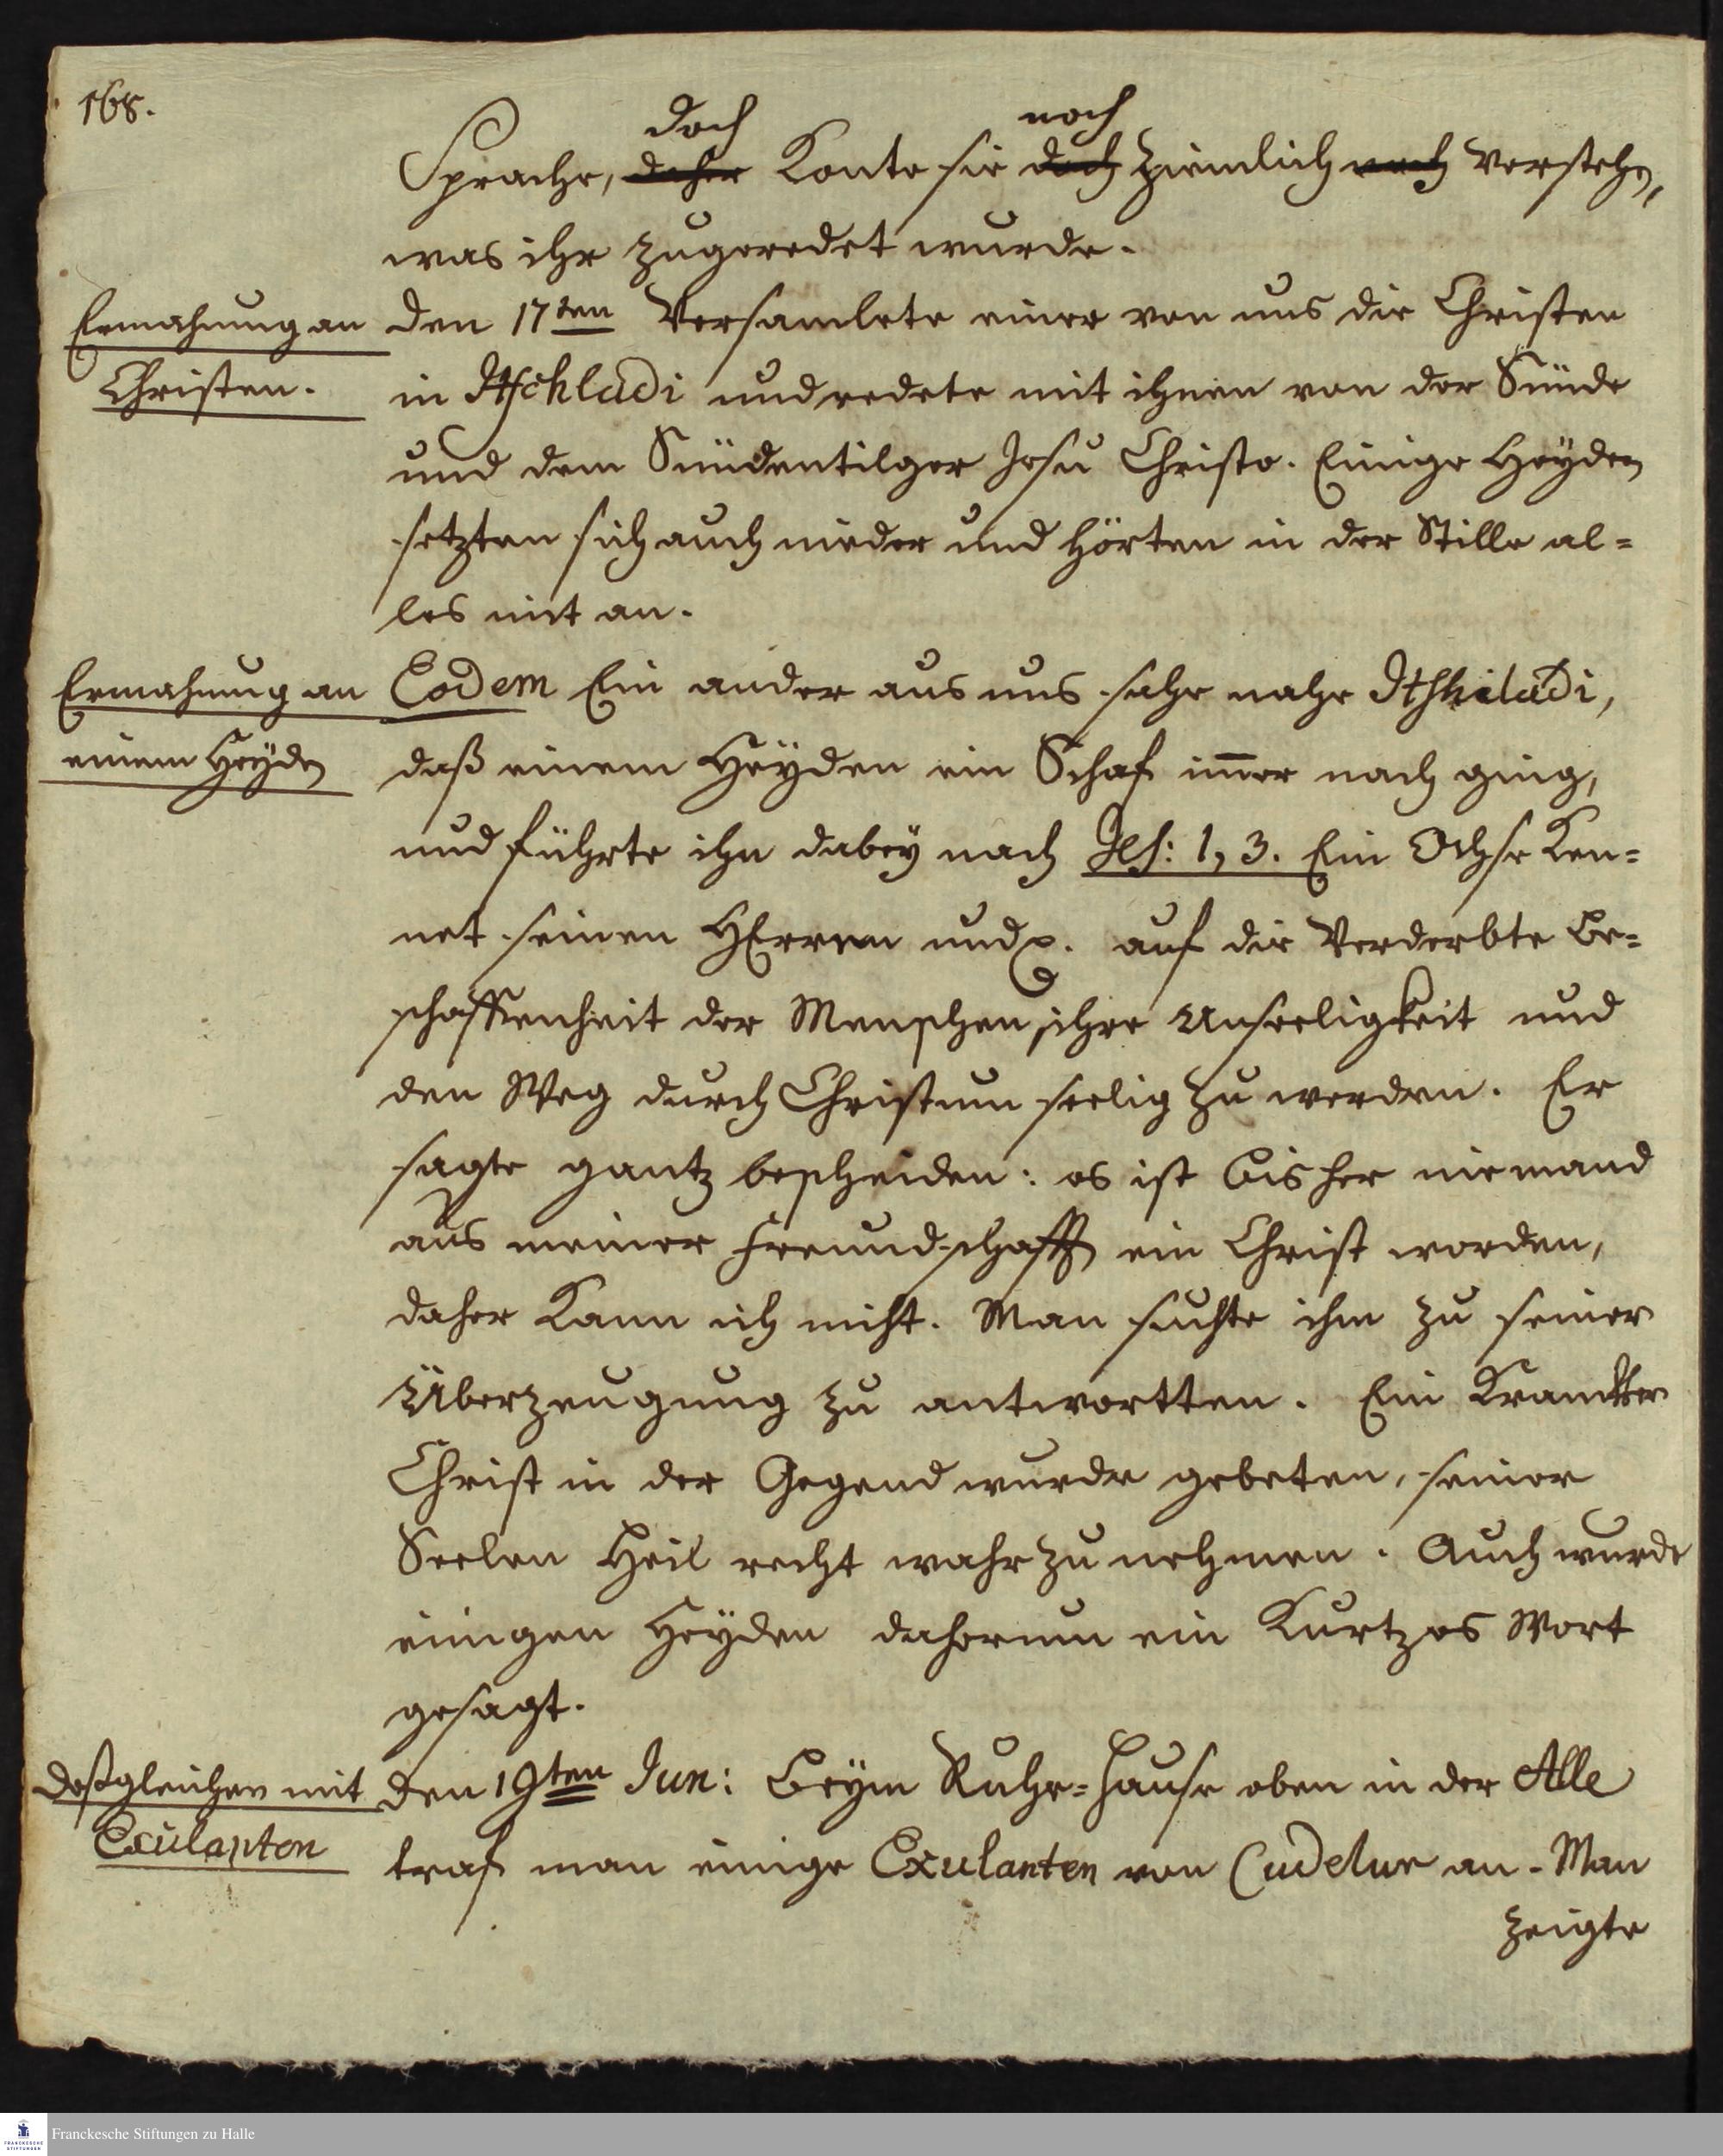 168.
doch noch
Sprache, daher konte sie doch ziemlich noch verstehen,
was ihr zugeredet wurde.
Ermahnung an
Christen.
den 17ten Versamlete einer von uns die Christen
in Itschiladi und redete mit ihnen von der Sünde
und dem Sündentilger Jesu Christo. Einige Heyden
setzten sich auch nieder und hörten in der Stille al=
les mit an.
Ermahnung an
einem Heyden
Eodem Ein ander aus uns sahe nahe Itshiladi,
daß einem Heyden ein Schaf im̄er nach ging,
und führte ihn dabey nach Jes: 1, 3. Ein Ochse ken=
net seinen HErren und p. auf die Verderbte Be=
schaffenheit der Menschen, ihre Unseeligkeit und
den Weg durch Christum seelig zu werden. Er
sagte gantz bescheiden: es ist bisher niemand
aus meiner Freundschafft ein Christ worden,
daher kann ich nicht. Man suchte ihm zu seiner
Überzeugung zu antwortten. Ein Krancker
Christ in der Gegend wurde gebeten, seiner
Seelen Heil recht wahr zu nehmen. Auch wurde
einigen Heyden daherum ein kurtzes Wort
gesagt.
Deßgleichen mit
Exulanten
den 19ten Jun: Beym Ruhe=Hause oben in der Alle
traf man einige Exulanten von Cudelur an. Man
zeigte
Franckesche Stiftungen zu Halle
FRANCKESCHE
STIFTUNGEN